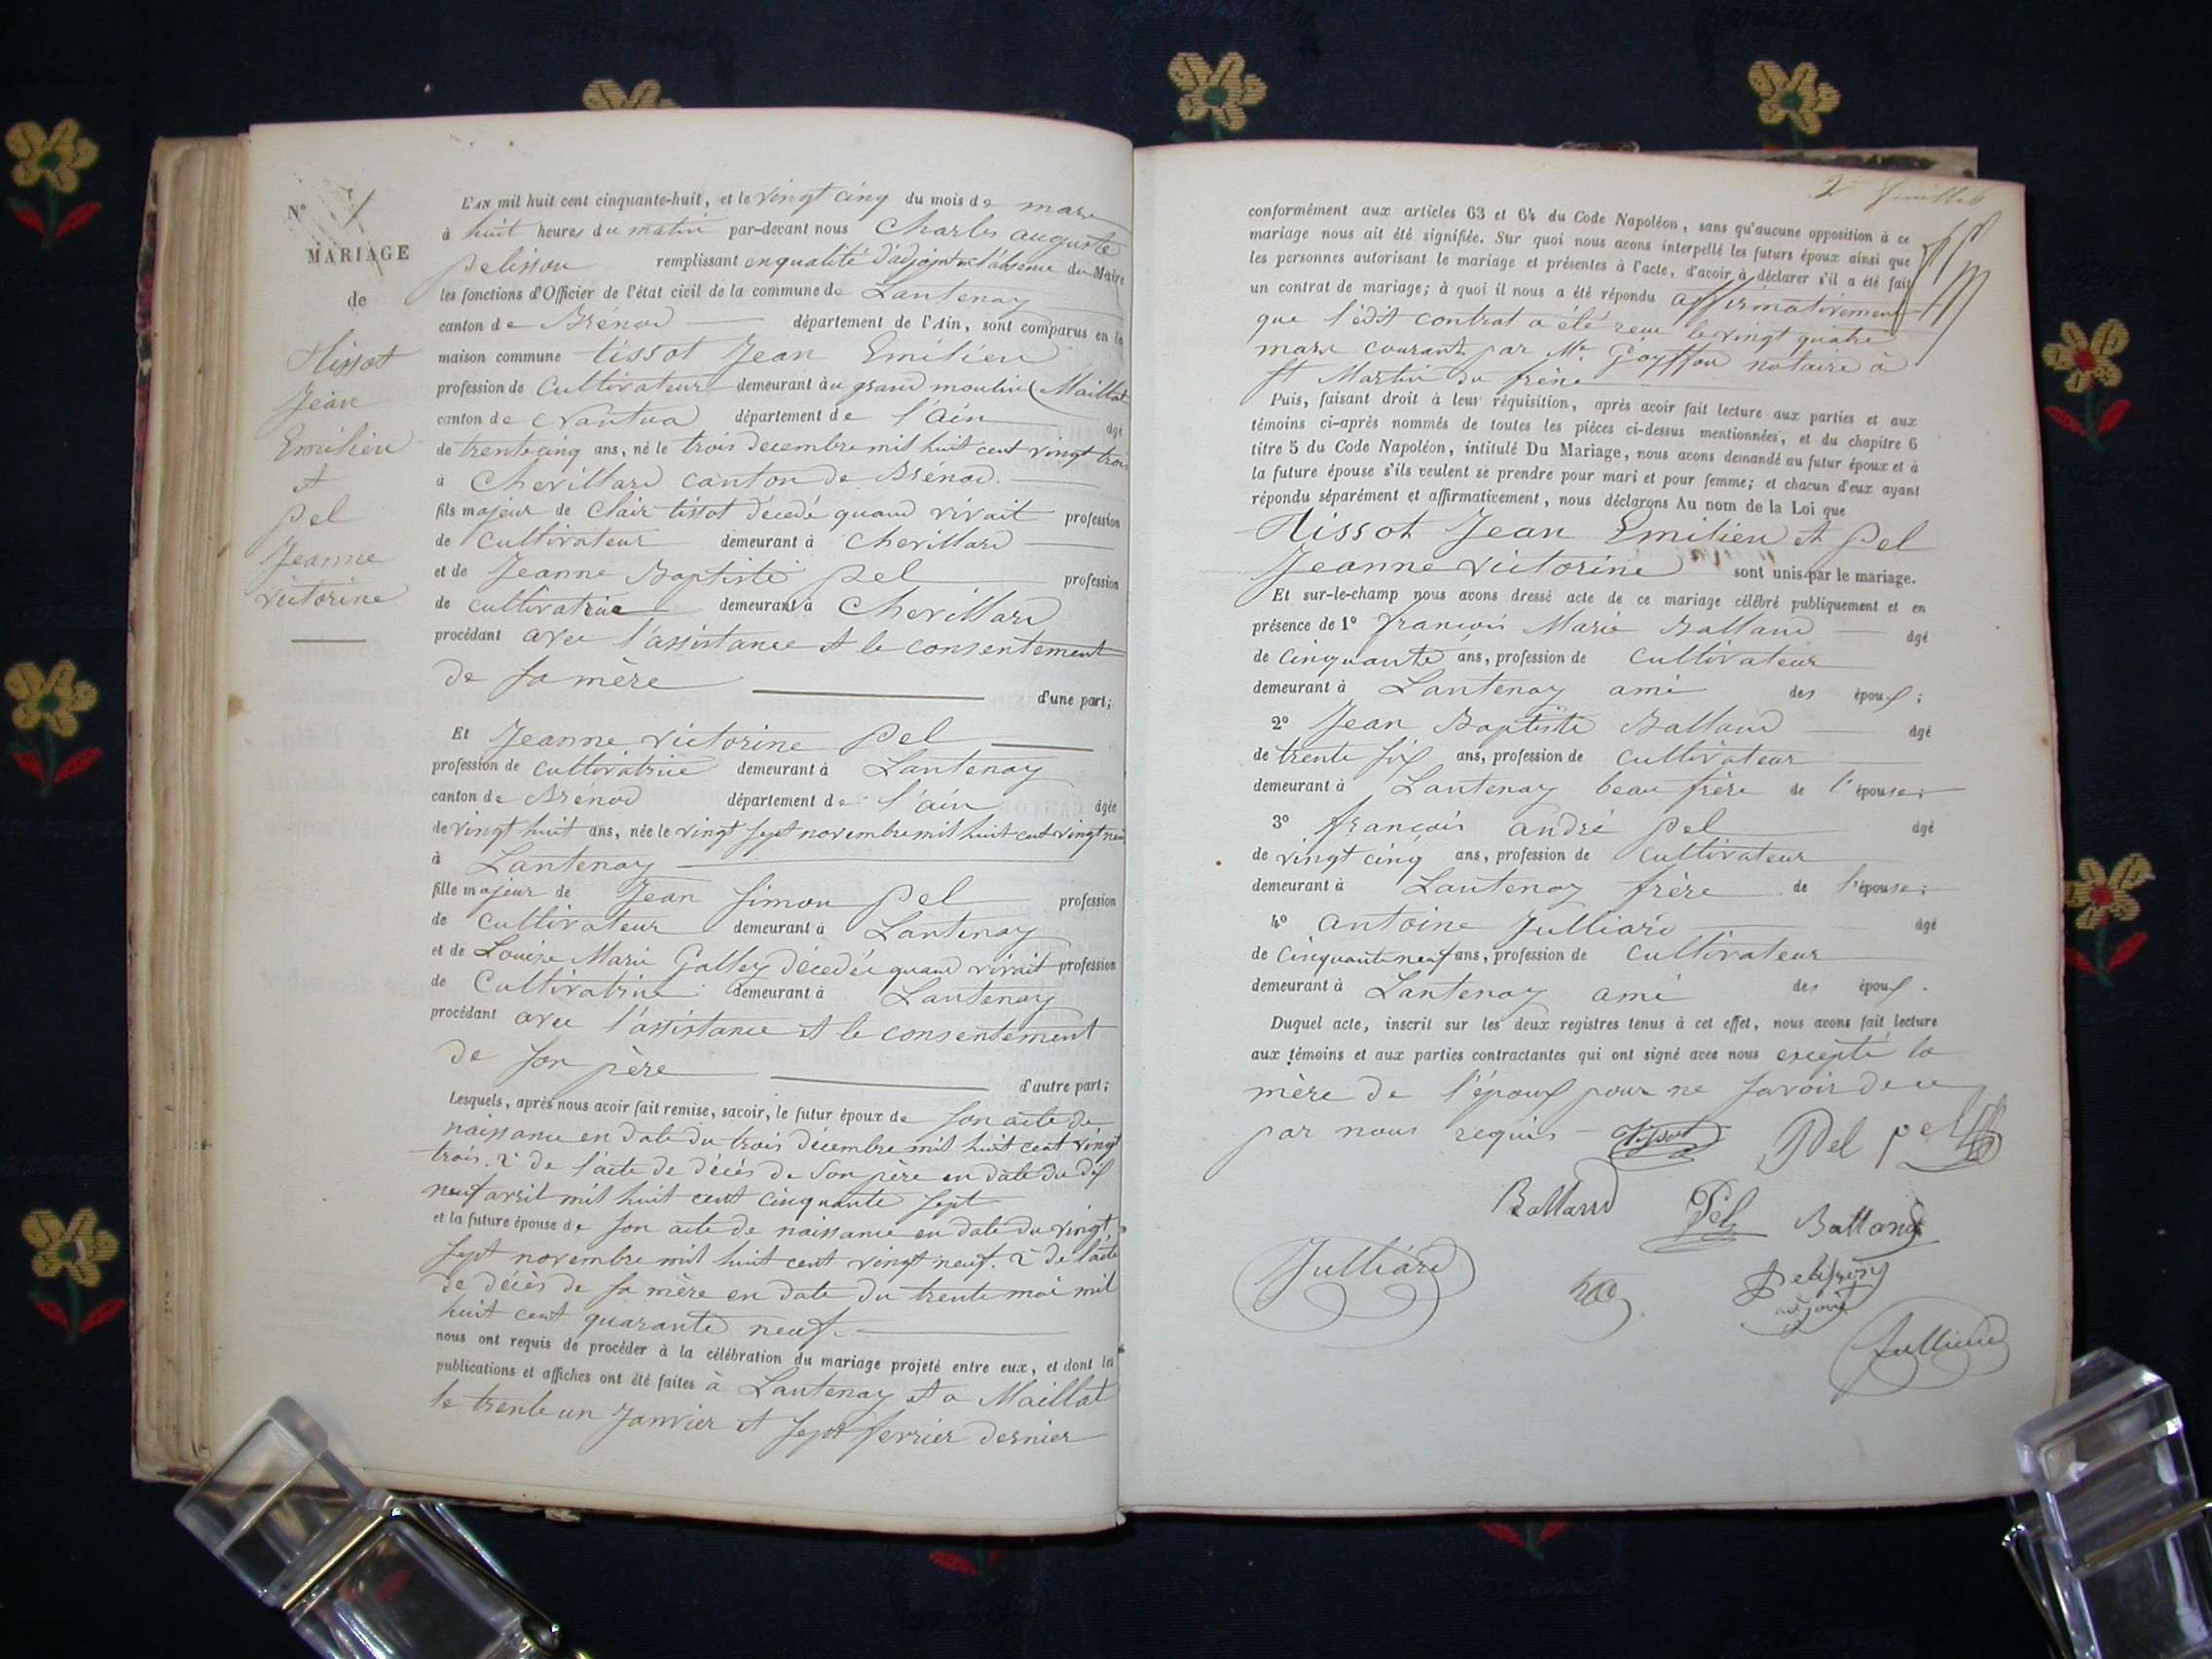 N° 1
MARIAGE
de
Tissot
Jean
Emilien
et
Pel
Jeanne
victorine
L'AN mil huit cent cinquante-huit, et le vingt cinq du mois de mars
à huit heures du matin par-devant nous Charles auguste
pelisson remplissant en qualité d'adjoint en l'absence du Maire
les fonctions d'Officier de l'état civil de la commune de Lantenay
canton de Brénod département de l'Ain, sont comparus en la
maison commune tissot Jean Emilien
profession de Cultivateur demeurant au grand moulin (Maillat
canton de Nantua département de l'ain âgé
de trente cinq ans, né le trois decembre mil huit cent vingt trois
à Chevillard canton de Brénod.
fils majeur de Clair tissot décedé quand vivait profession
de cultivateur demeurant à Chevillard
et de Jeanne Baptiste pel profession
de cultivatrice demeurant à Chevillard
procédant avec l'assistance et le consentement
de sa mère d'une part;
Et Jeanne victorine Pel
profession de cultivatrice demeurant à Lantenay
canton de Brénod département de l'ain âgée
de vingt huit ans, née le vingt sept novembre mil huit cent vingt neuf
à Lantenay
fille majeur de Jean Simon Pel profession
de cultivateur demeurant à Lantenay
et de Louise Marie Gallez décedée quand vivait profession
de Cultivatrice demeurant à Lantenay
procédant avec l'assistance et le consentement
de son père d'autre part;
Lesquels, après nous avoir fait remise, savoir, le futur époux de son acte de
naissance en date du trois décembre mil huit cent vingt
trois. 2° de l'acte de décès de son père en date du dix
neuf avril mil huit cent cinquante sept
et la future épouse de son acte de naissance en date du vingt
sept novembre mil huit cent vingt neuf. 2° de l'acte
de décès de sa mère en date du trente mai mil
huit cent quarante neuf.
nous ont requis de procéder à la célébration du mariage projeté entre eux, et dont les
publications et affiches ont été faites à Lantenay et a Maillat
le trente un Janvier et sept fevrier dernier
2 feuillet
conformément aux articles 63 et 64 du Code Napoléon, sans qu'aucune opposition à ce
mariage nous ait été signifiée. Sur quoi nous avons interpellé les futurs époux ainsi que
les personnes autorisant le mariage et présentes à l'acte, d'avoir à déclarer s'il a été fait
un contrat de mariage; à quoi il nous a été répondu affirmativement
que l'édit contrat a été reçu le vingt quatre
mars courant par Me Goyffon notaire à
St Martin du frêne
Puis, faisant droit à leur réquisition, après avoir fait lecture aux parties et aux
témoins ci-après nommés de toutes les pièces ci-dessus mentionnées, et du chapitre 6
titre 5 du Code Napoléon, intitulé Du Mariage, nous avons demandé au futur époux et à
la future épouse s'ils veulent se prendre pour mari et pour femme; et chacun d'eux ayant
répondu séparément et affirmativement, nous déclarons Au nom de la Loi que
Tissot Jean Emilien et Pel
Jeanne victorine sont unis par le mariage.
Et sur-le-champ nous avons dressé acte de ce mariage célébré publiquement et en
présence de 1° françois Marie Balland âgé
de cinquante ans, profession de cultivateur
demeurant à Lantenay ami des époux;
2° Jean Baptiste Balland âgé
de trente six ans, profession de cultivateur
demeurant à Lantenay beau frère de l'épouse;
3° françois andré Pel âgé
de vingt cinq ans, profession de cultivateur
demeurant à Lantenay frère de l'épouse;
4° antoine Julliard âgé
de Cinquante neuf ans, profession de cultivateur
demeurant à Lantenay ami des époux.
Duquel acte, inscrit sur les deux registres tenus à cet effet, nous avons fait lecture
aux témoins et aux parties contractantes qui ont signé avec nous excepté la
mère de l'époux pour ne savoir de ce
par nous requis Tissot Pel pel
Balland Pel Balland
Julliard Pelisson
adjoint
Julliard